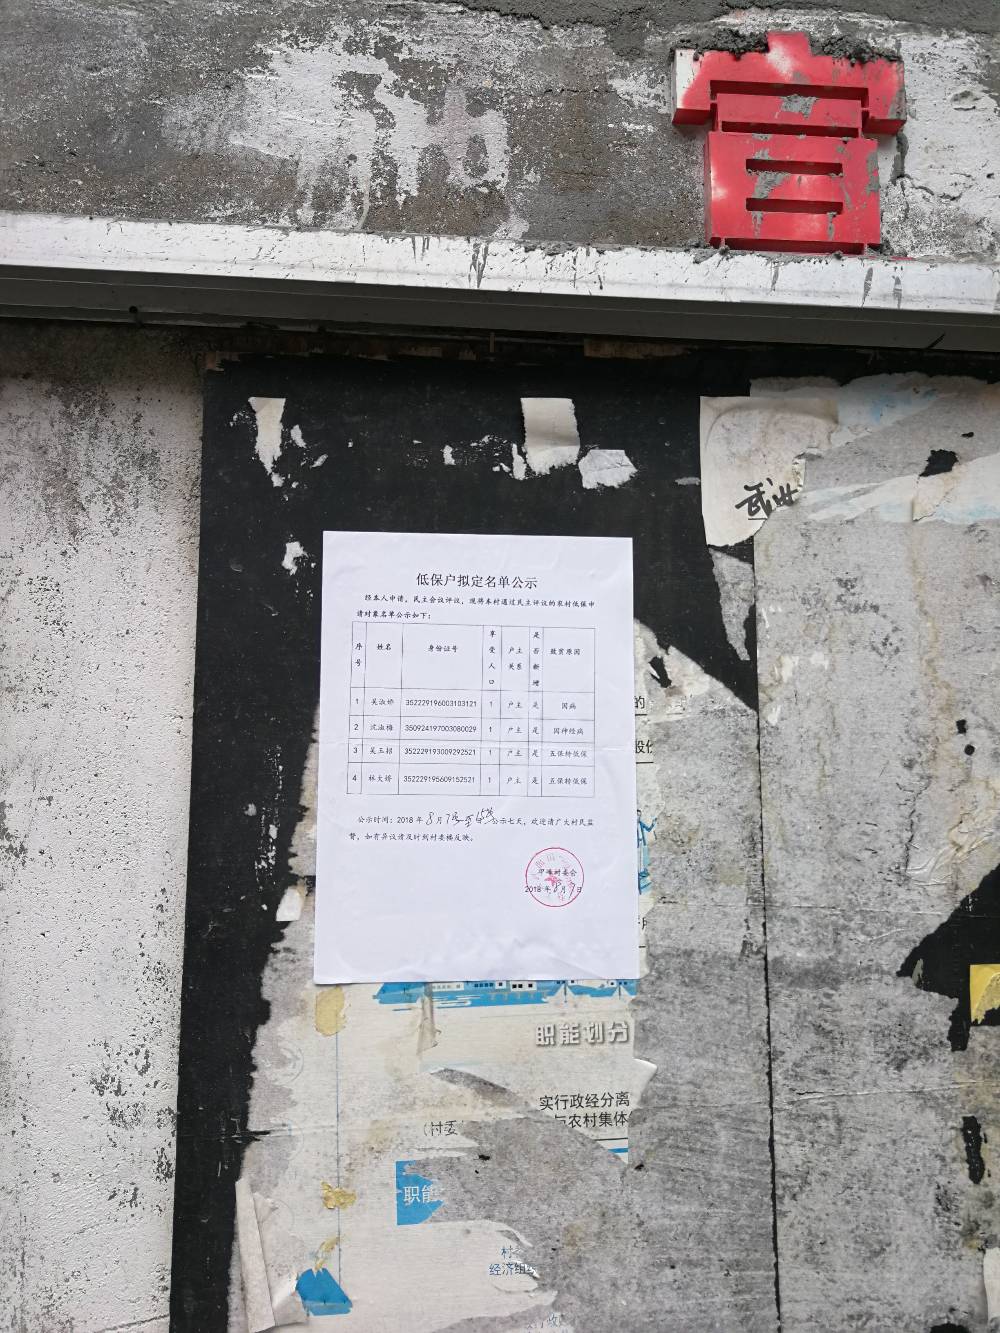 宣
武洲
低保户拟定名单公示
经本人申请,民主会议评议,现将本村通过民主评议的农村低保申
请对象名单公示如下:
序号 姓名 身份证号 享受人口 户主关系 是否新增 致贫原因
1 吴淑娇 352229196003103121 1 户主 是 因病
2 沈淑梅 350924197003080029 1 户主 是 因神经病
3 吴玉招 352229193009292521 1 户主 是 五保转低保
4 林大娇 352229195609152521 1 户主 是 五保转低保
公示时间:2018年8月7日至 公示七天,欢迎请广大村民监
督,如有异议请及时到村委楼反映。
村委会
2018年8月7日
的
股份
职能划分
实行政经分离
与农村集体
(村委
职能
村
经济组织